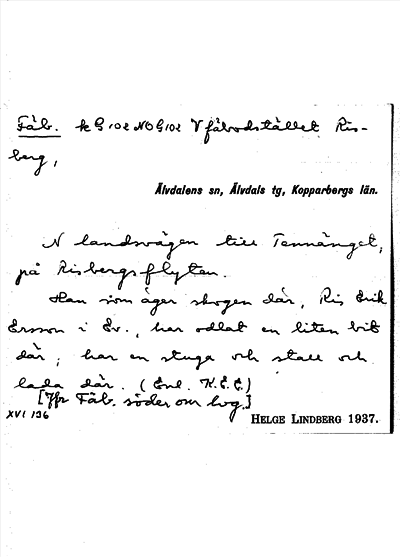 Fäb. k G 102 NO G 102 V fäbodstället Ris-
berg,
Älvdalens sn, Älvdals tg, Kopparbergs län.
N landsvägen till Tennänget,
på Risbergsflyten.
Han som äger skogen där, Ris Erik
Ersson i Ev., har odlat en liten bit
där; har en stuga och stall och
lada där. (Enl. K.E.E.)
[Jfr Fäb. söder om lvg.]
XVI 196
HELGE LINDBERG 1937.